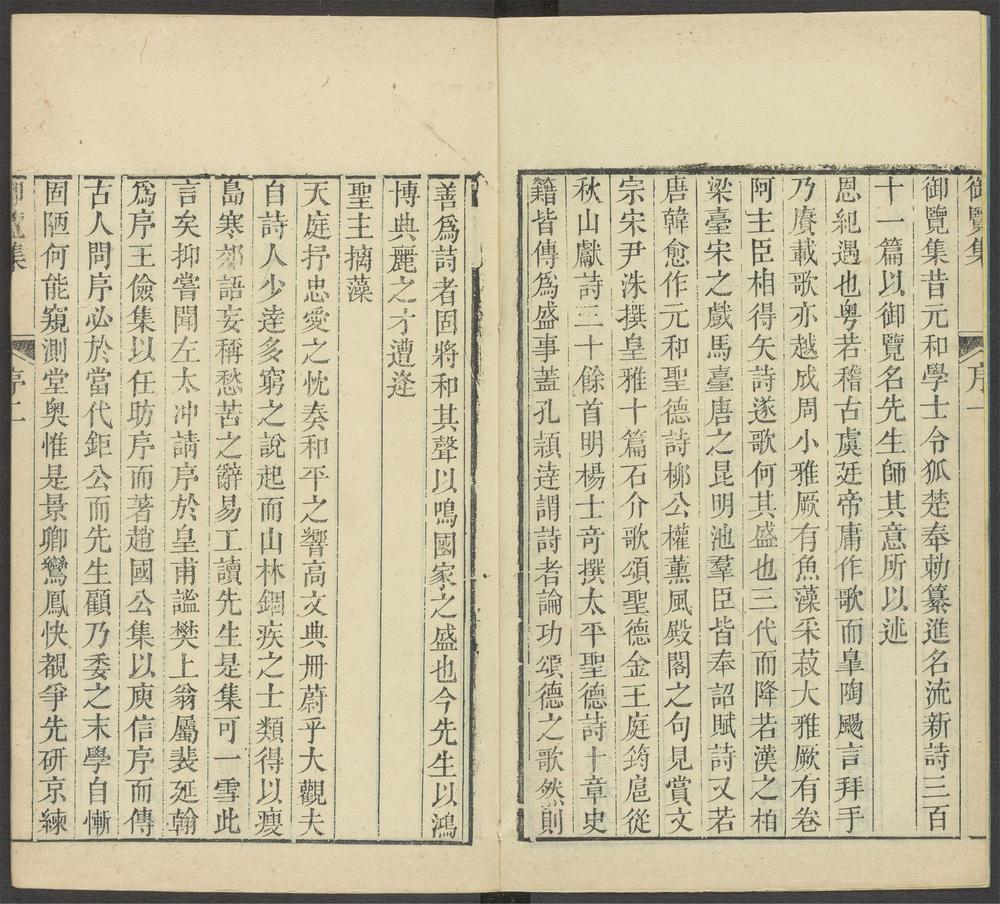 御覽集
序一
御覽集昔元和學士令狐楚奉勅纂進名流新詩三百
十一篇以御覽名先生師其意所以述
恩紀遇也粵若稽古虞廷帝庸作歌而皐陶颺言拜手
乃賡載歌亦越成周小雅厥有魚藻采菽大雅厥有卷
阿主臣相得矢詩遂歌何其盛也三代而降若漢之柏
梁臺宋之戲馬臺唐之昆明池羣臣皆奉詔賦詩又若
唐韓愈作元和聖德詩柳公權薰風殿閣之句見賞文
宗宋尹洙撰皇雅十篇石介歌頌聖德金王庭筠扈從
秋山獻詩三十餘首明楊士奇撰太平聖德詩十章史
籍皆傳爲盛事蓋孔頴達謂詩者論功頌德之歌然則
善爲詩者固將和其聲以鳴國家之盛也今先生以鴻
博典麗之才遭逢
聖主摛藻
天庭抒忠愛之忱奏和平之響高文典冊蔚乎大觀夫
自詩人少達多窮之說起而山林錮疾之士類得以瘦
島寒郊語妄稱愁苦之辭易工讀先生是集可一雪此
言矣抑嘗聞左太冲請序於皇甫謐樊上翁屬裴延翰
爲序王儉集以任昉序而著趙國公集以庾信序而傳
古人問序必於當代鉅公而先生顧乃委之末學自慚
固陋何能窺測堂奧惟是景卿鸞鳳快覩爭先研京練
御覽集
序二